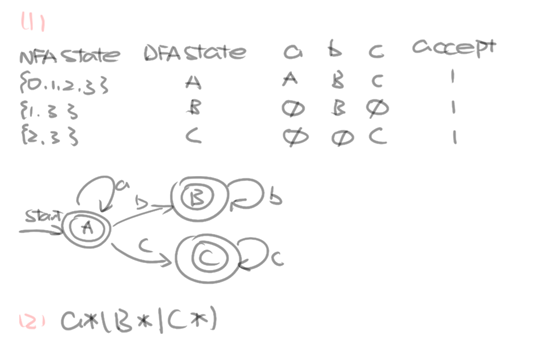 (1)
NFA State DFA State a b c accept
{0.1.2.3} A A B C 1
{1.3} B ∅ B ∅ 1
{2.3} C ∅ ∅ C 1
a
start A b B b
c C c
(2) a*(B*|C*)